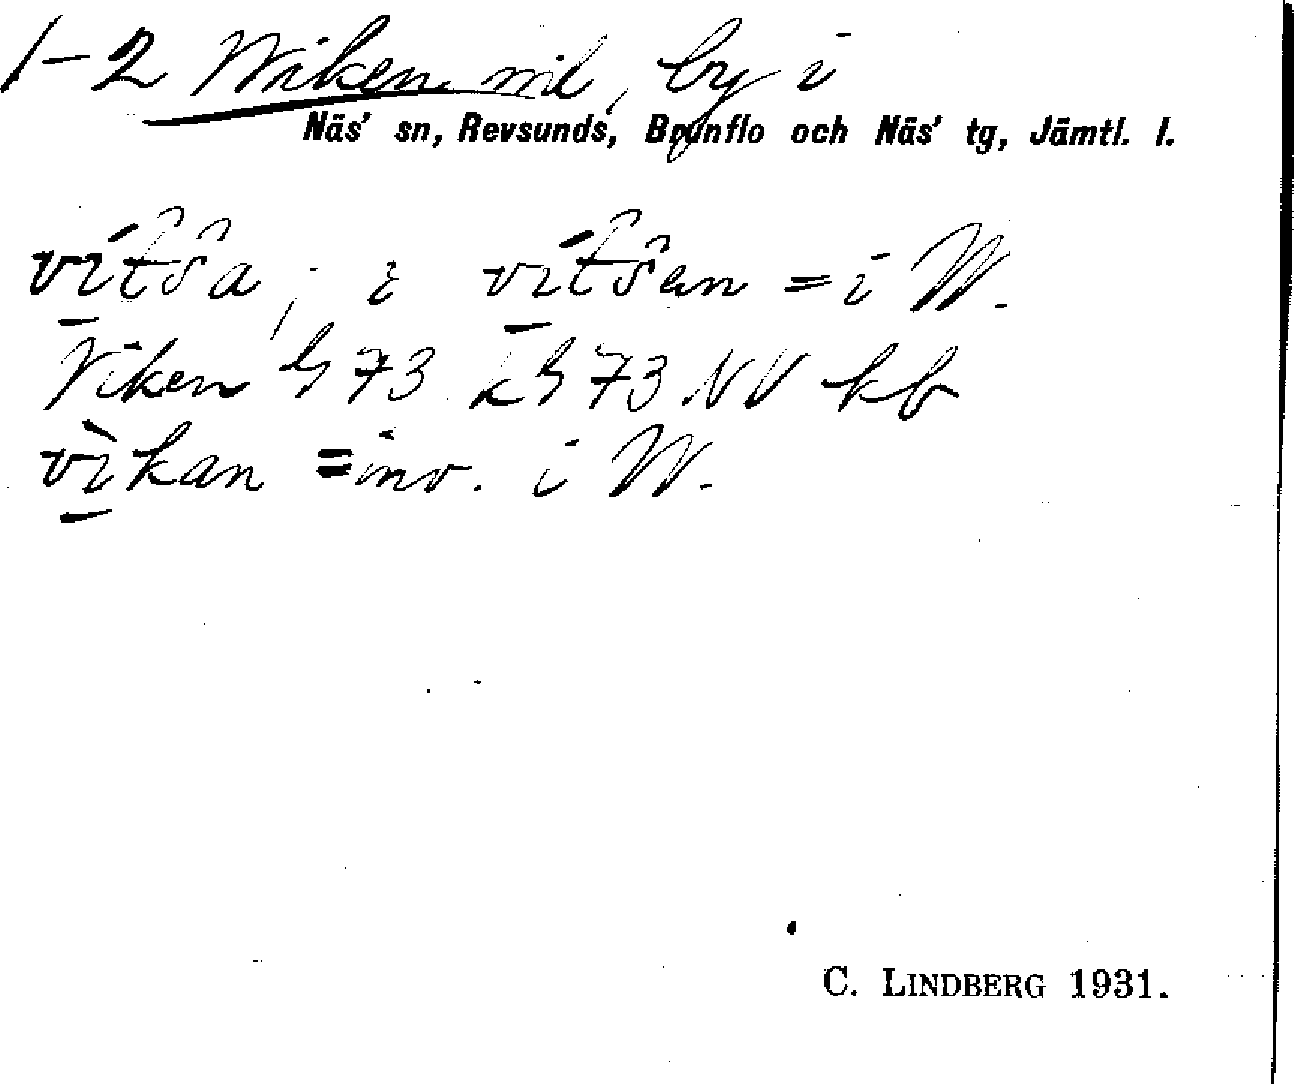 1-2 Wiken mil, by i
Näs' sn, Revsunds, Brunflo och Näs' tg, Jämtl. l.
vítŝa; i vítŝen = i W.
Viken 73 73 NV kb
vìkan = inv. i W.
C. LINDBERG 1931.